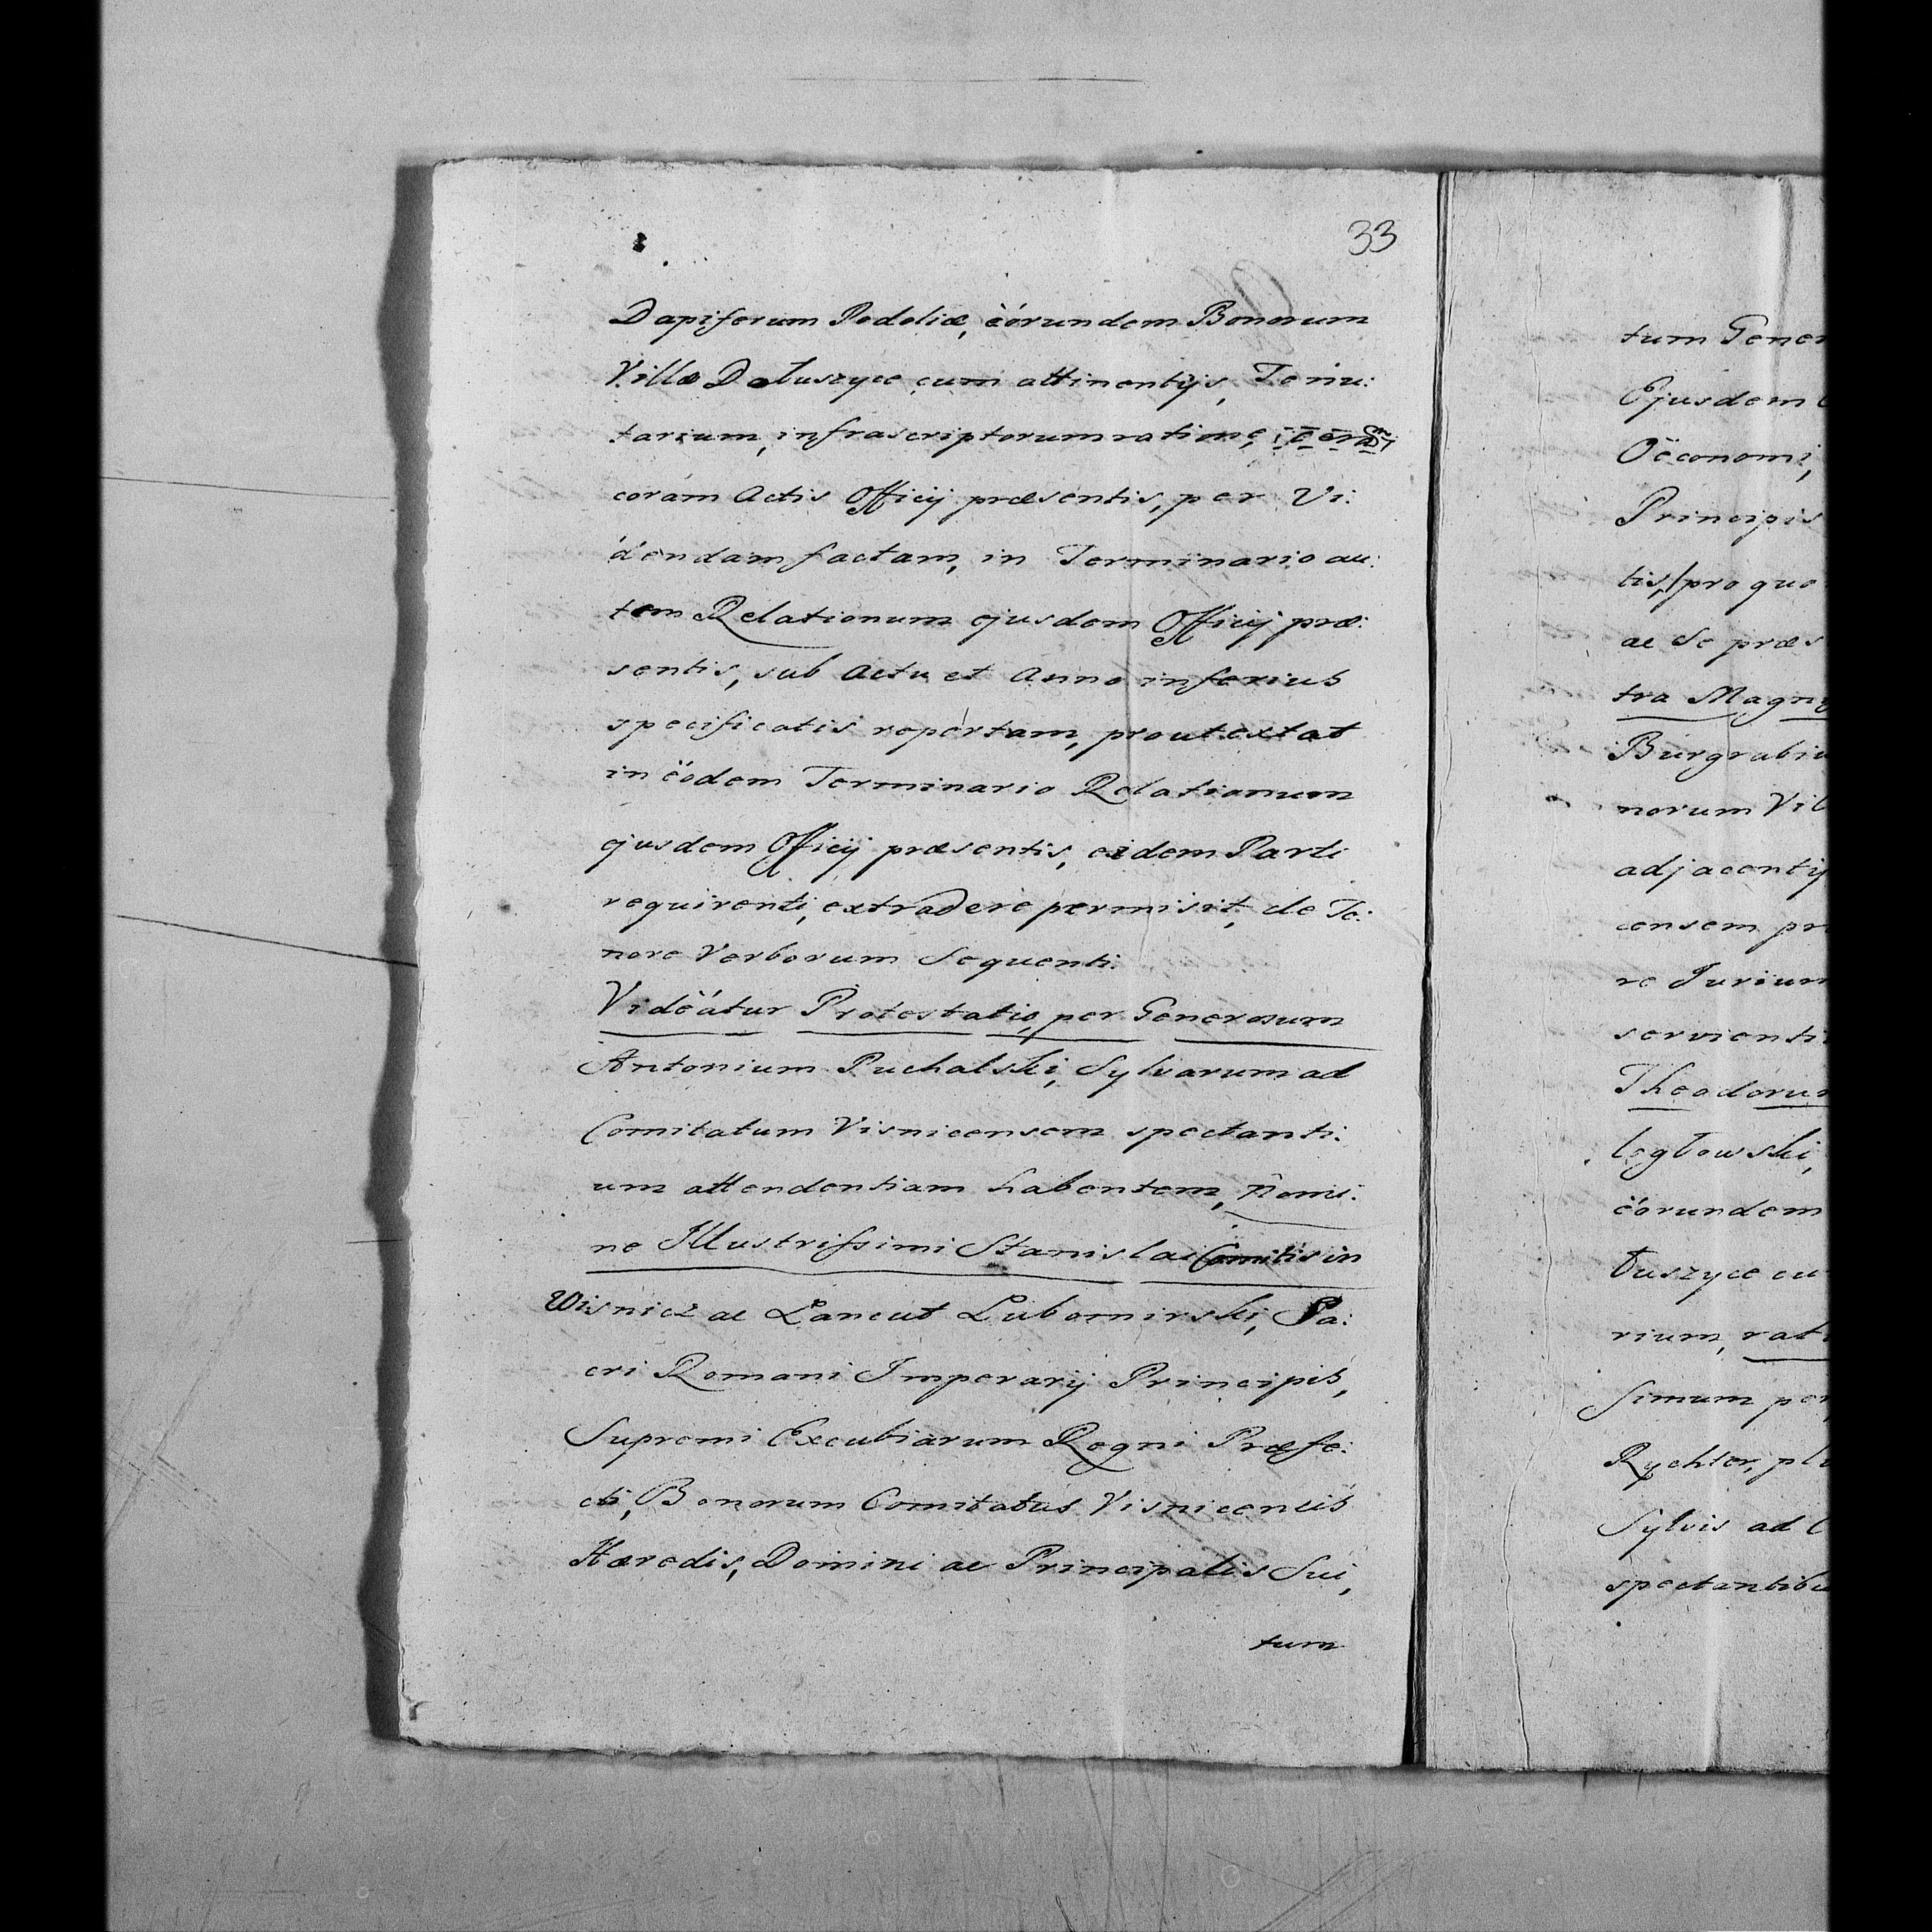 33
Dapiferum Podoliæ, ëórundem Bonorum
Villæ Dołuszyce cum attinentÿs, Tenu:
tarium, infrascriptorum ratione,
coram Actis Officÿ præsentis, per Vi:
dendam factam, in Terminario au:
tem Relationum ejusdem Officÿ præ:
sentis, sub Actu et Anno inferius
specificatis reportam, prout extat
in ëodem Terminario Relationum
ejusdem Officÿ præsentis, eidem Parti
requirenti, extradere permisit, de Te:
nore Verborum Sequenti.
Vidëátur Protestatio, per Generosum
Antonium Puchalski, Sylvarum ad
Comitatum Visnicensem spectanti:
um attendentiam habentem, Nomi:
ne Illustrissimi Stanislai Comitis in
Wisnicz ac Łancut Lubomirski, Sa:
cri Romani Imperarÿ Principis,
Supremi Excubiarum Regni Præfe:
cti, Bonorum Comitatus Visnicensis
Hæredis, Domini ac Principalis Sui,
tum
tum Gener
Ejusdem C
Oëconomi,
Principis
tis, pro quo
ac Se præs
tra Magn
Burgrabiu
norum Vil
adjacentÿ
censem pr
re Jurium
servienti
Theodorum
ległowski,
ëorundem
łuszyce cu
rium, rati
simum per
Rychter, pl
Sylvis ad C
spectantibu